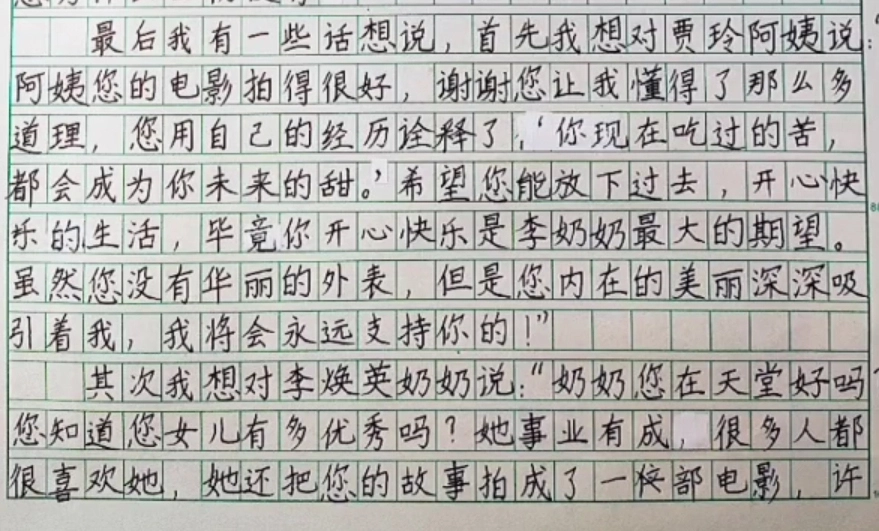 最后我有一些话想说，首先我想对贾玲阿姨说：“
阿姨您的电影拍得很好，谢谢您让我懂得了那么多
道理，您用自己的经历诠释了，‘你现在吃过的苦，
都会成为你未来的甜。’希望您能放下过去，开心快
乐的生活，毕竟你开心快乐是李奶奶最大的期望。
虽然您没有华丽的外表，但是您内在的美丽深深吸
引着我，我将会永远支持你的！”
其次我想对李焕英奶奶说：“奶奶您在天堂好吗？
您知道您女儿有多优秀吗？她事业有成，很多人都
很喜欢她，她还把您的故事拍成了一部电影，许